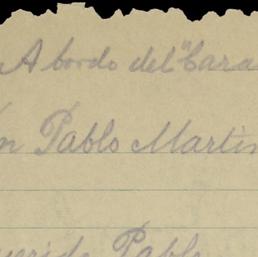 A bordo del "Cara
n Pablo Martin
uerido Pablo